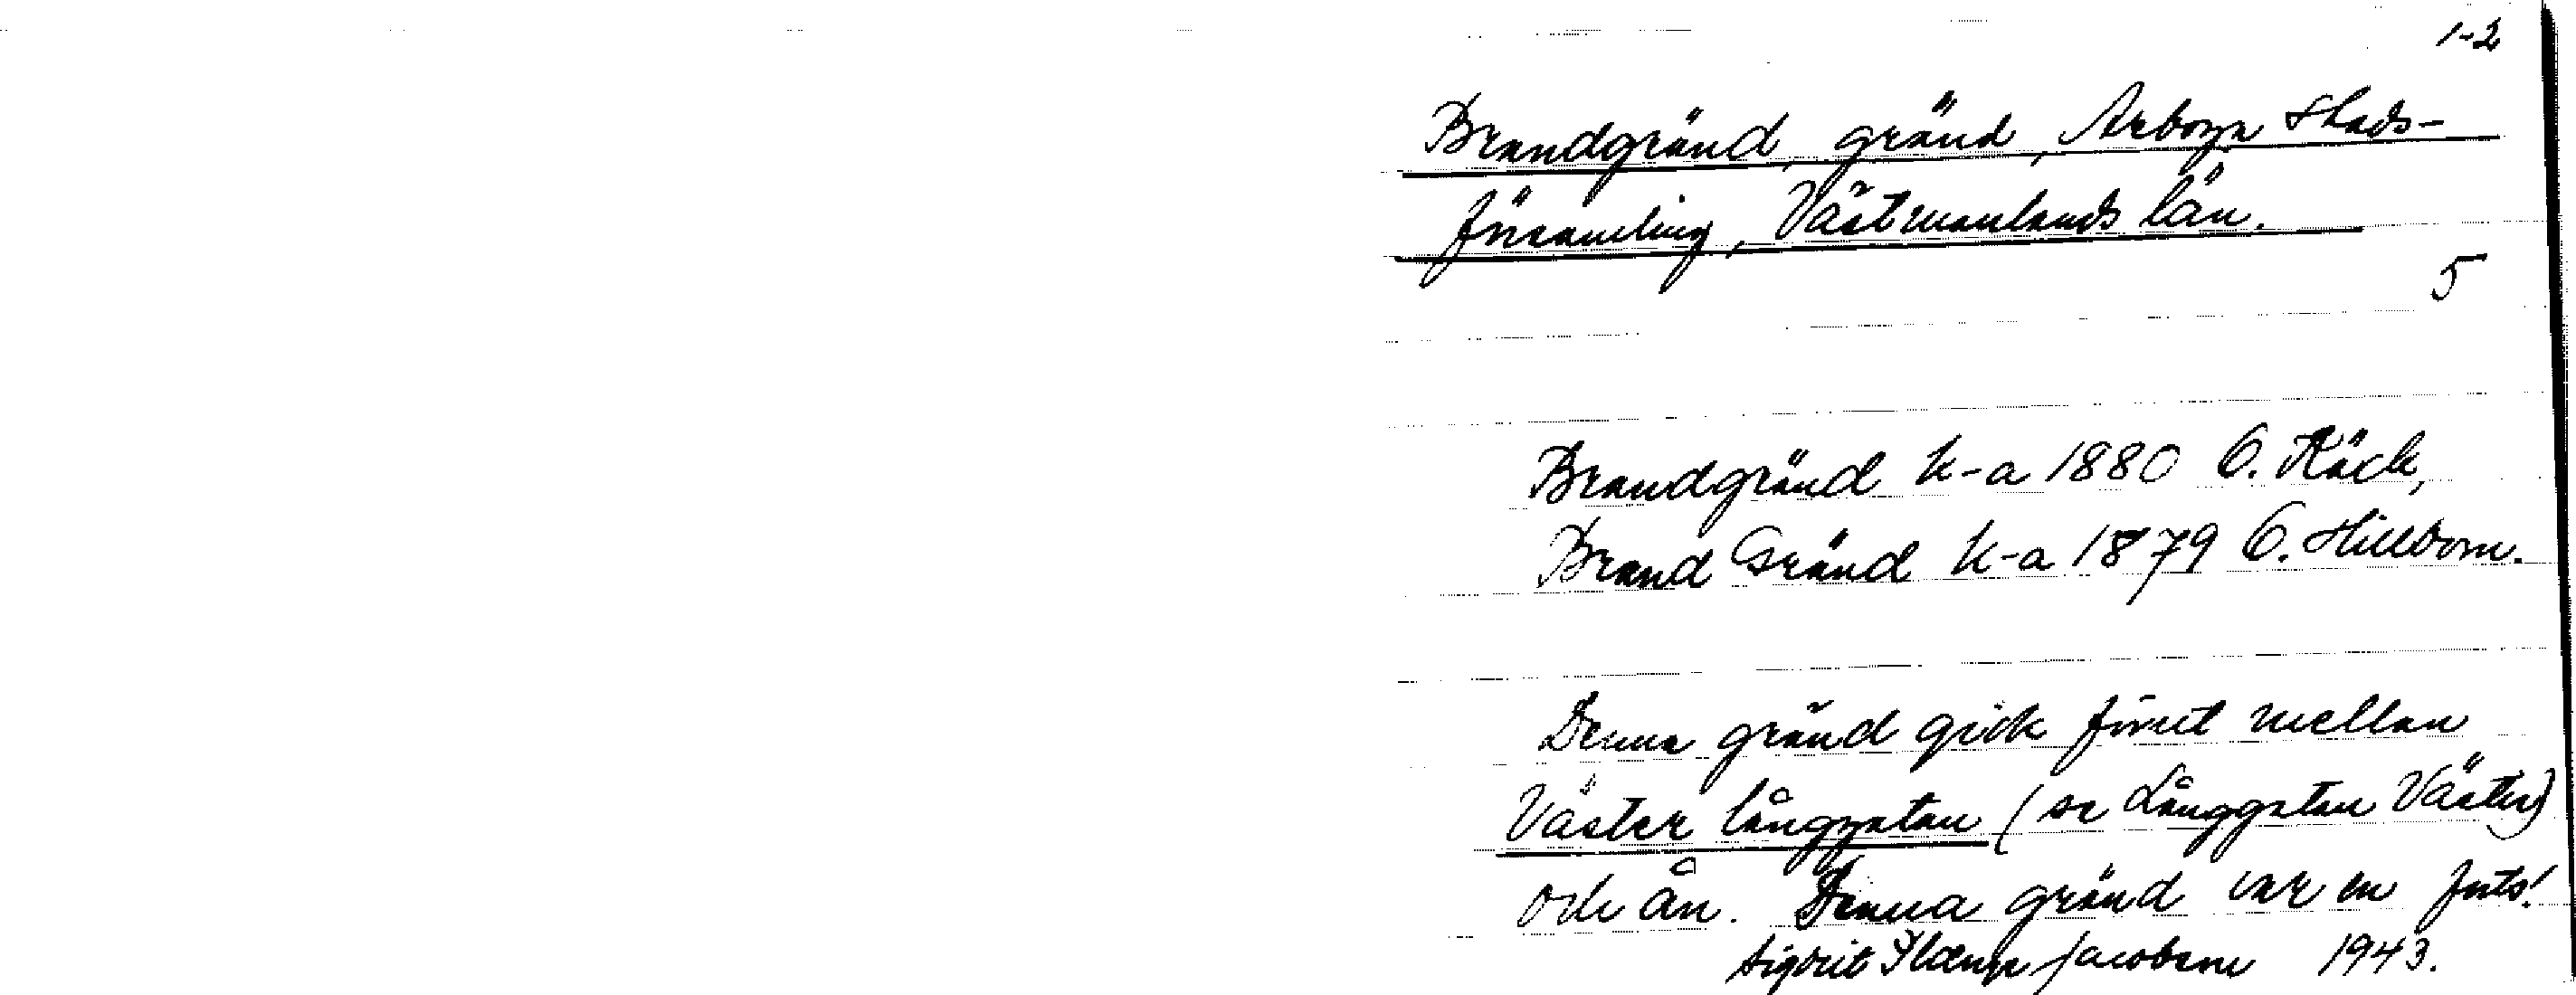 1-2
Brandgränd, gränd, Arboga stads-
församling, Västmanlands län.
5
Brandgränd k-a 1880 O. Käck,
Brand Gränd k-a 1879 O. Hillbom.
Denna gränd gick förut mellan
Väster långgatan (se Långgatan Väster)
och ån. Denna gränd var en forts!
Jacobson 1943.